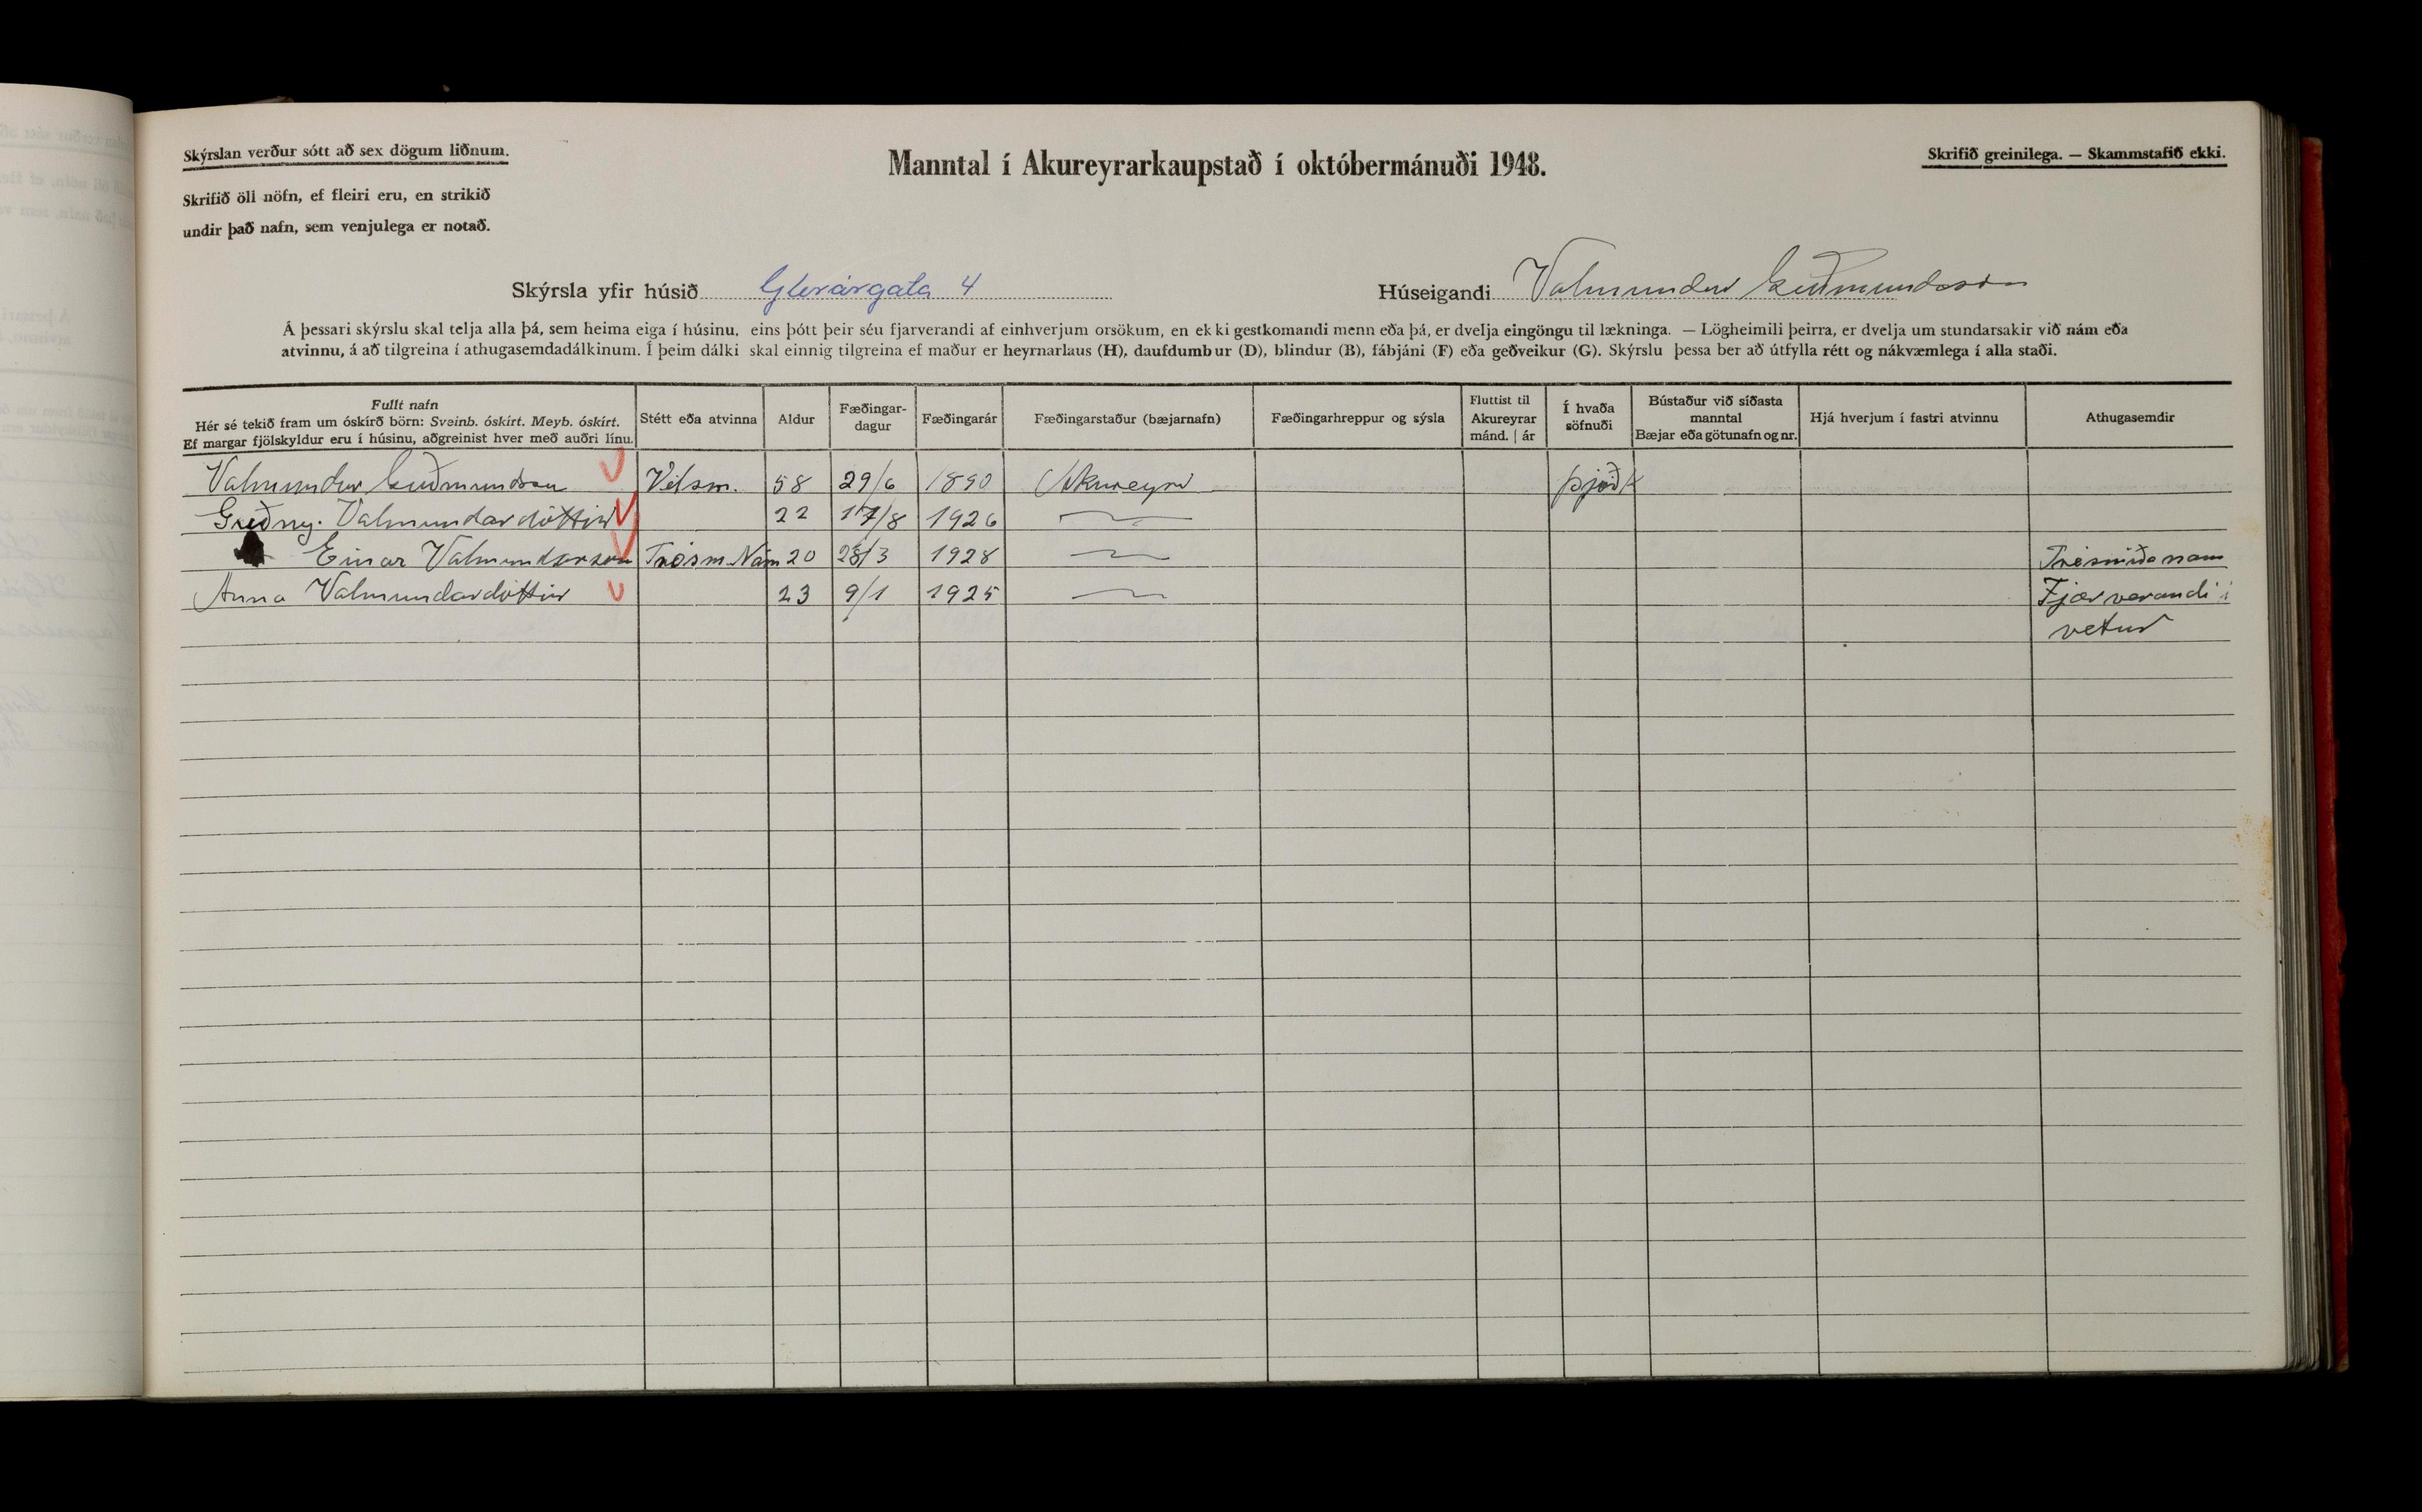 Skýrslan verður sótt að sex dögum liðnum.
Skrifið öll nöfn, ef fleiri eru, en strikið
undir það nafn, sem venjulega er notað.
Manntal í Akureyrarkaupstað í októbermánuði 1948.
Skrifið greinilega. — Skammstafið ekki.
Skýrsla yfir húsið Glerárgata 4
Húseigandi Valmundur Guðmundsson
Á þessari skýrslu skal telja alla þá, sem heima eiga í húsinu, eins þótt þeir séu fjarverandi af einhverjum orsökum, en ekki gestkomandi menn eða þá, er dvelja eingöngu til lækninga. — Lögheimili þeirra, er dvelja um stundarsakir við nám eða
atvinnu, á að tilgreina í athugasemdadálkinum. Í þeim dálki skal einnig tilgreina ef maður er heyrnarlaus (H), daufdumbur (D), blindur (B), fábjáni (F) eða geðveikur (G). Skýrslu þessa ber að útfylla rétt og nákvæmlega í alla staði.
Fullt nafn
Hér sé tekið fram um óskírð börn: Sveinb. óskírt. Meyb. óskírt.
Ef margar fjölskyldur eru í húsinu, aðgreinist hver með auðri línu.
Stétt eða atvinna
Aldur
Fæðingar-
dagur
Fæðingarár
Fæðingarstaður (bæjarnafn)
Fæðingarhreppur og sýsla
Fluttist til
Akureyrar
mánd. | ár
Í hvaða
söfnuði
Bústaður við síðasta
manntal
Bæjar eða götunafn og nr.
Hjá hverjum í fastri atvinnu
Athugasemdir
Valmundur Guðmundsson Vélsm. 58 29/6 1890 Akureyri þjóðk
Guðný. Valmundardóttir 22 17/8 1926
Einar Valmundarson Trésm.Nám 20 28/3 1928 Trésmíðanam
Anna Valmundardóttir 23 9/1 1925 Fjarverandi í
vetur